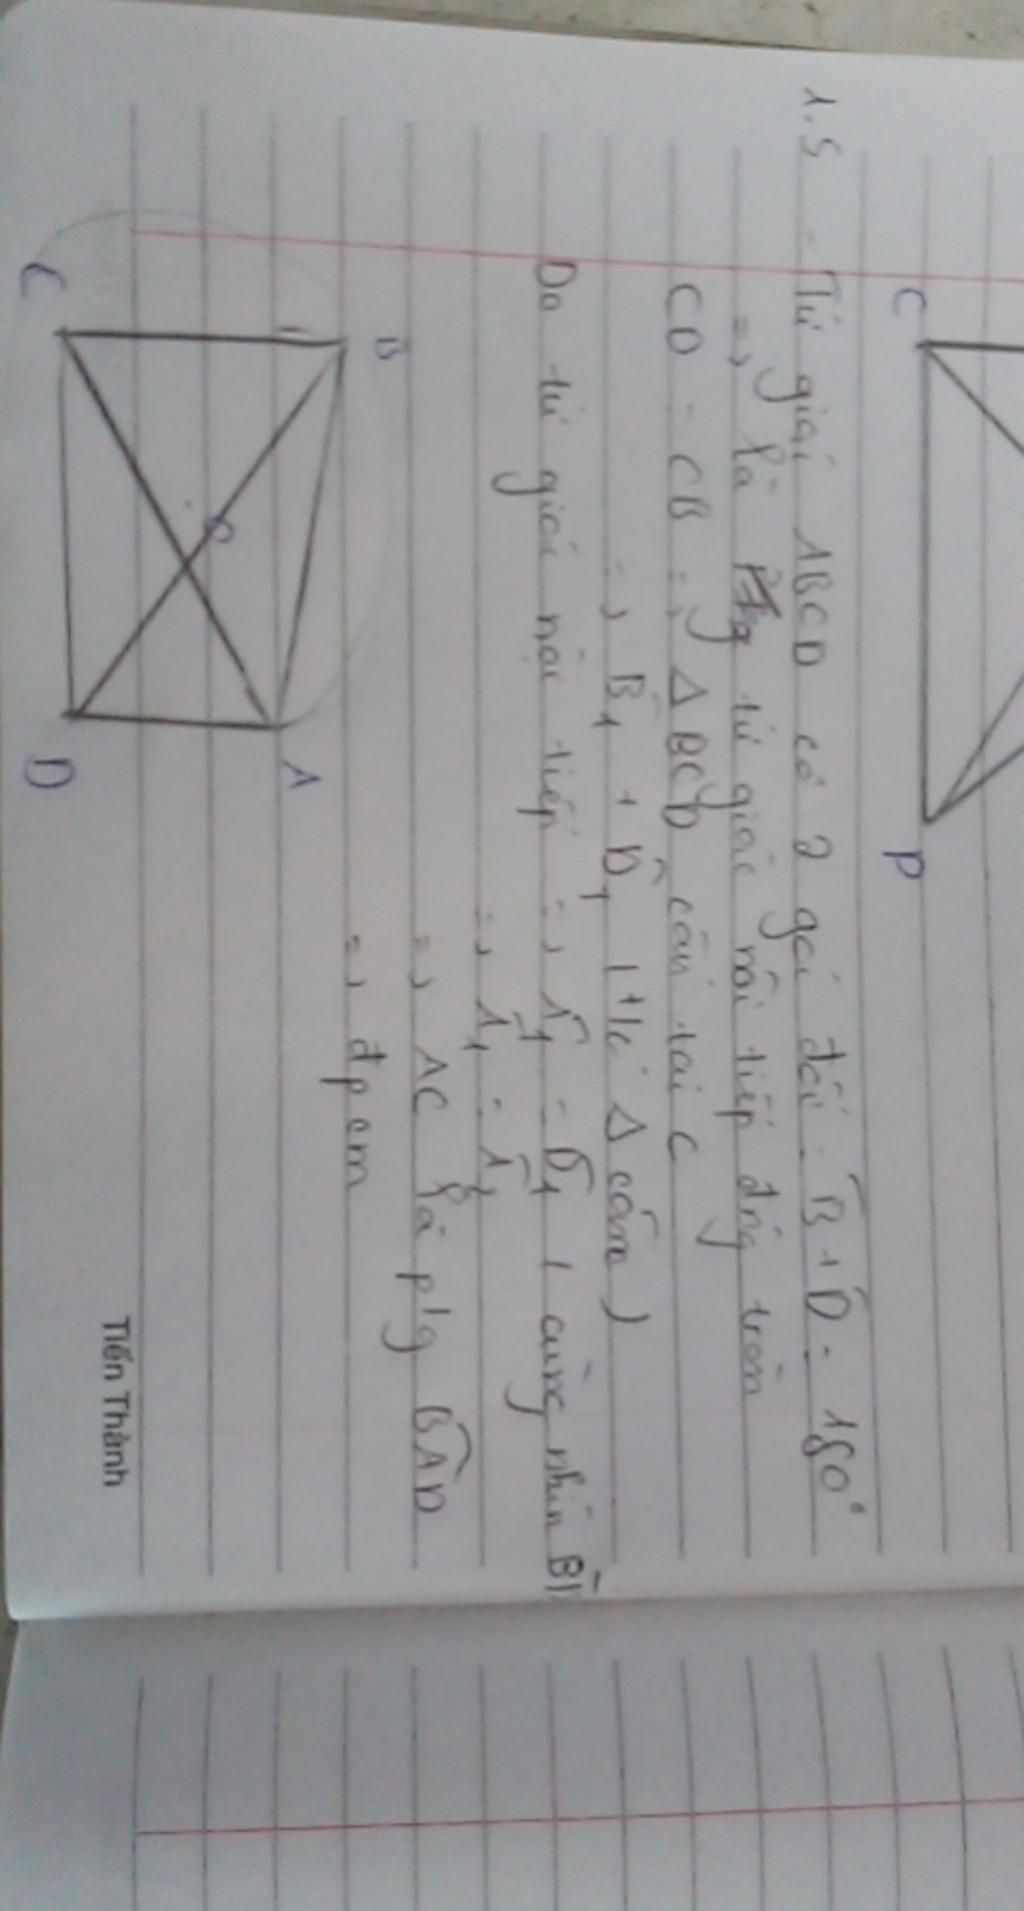 C
P
1.5 - Tứ giác ABCD có 2 góc đối: B̂ + D̂ = 180°
=> là tứ giác nội tiếp đng tròn
CD = CB => Δ BCD cân tại C
=> B̂1 + D̂1 ( t/c Δ cân )
Do tứ giác nội tiếp => Â1 = D̂1 ( cùng nhìn
=> Â1 = Â
=> AC là p/g BAD
=> đpcm
B
A
C
D
Tiến Thành